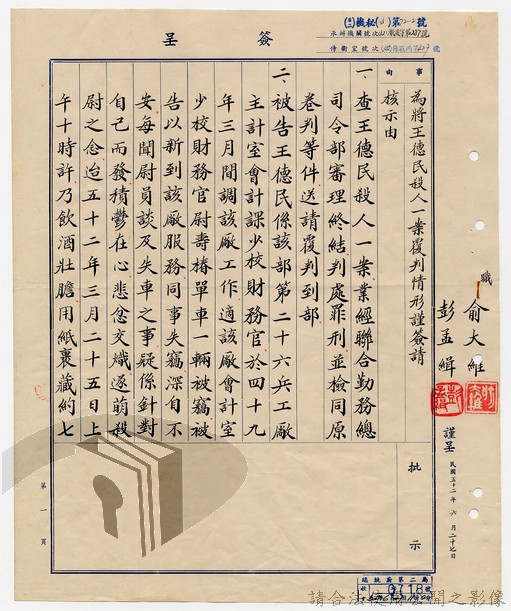 簽呈
事由
為將王德民殺人一案覆判情形謹簽請
核示由
一、查王德民殺人一案業經聯合勤務總
司令部審理終結判處罪刑並檢同原
卷判等件送請覆判到部
二、被告王德民係該部第二十六兵工廠
主計室會計課少校財務官於四十九
年三月間調該廠工作適該廠會計室
少校財務官尉壽椿單車一輛被竊被
告以新到該廠服務同事失竊深自不
安每聞尉員談及失車之事疑係針對
自己而發積鬱在心悲忿交熾遂萌殺
尉之念迨五十二年三月二十五日上
午十時許乃飲酒壯膽用紙裹藏約七
職
俞大維
彭孟緝
謹呈
民國五十二年六月二十七日
批示
第一頁
承辦機關號次
侍衛室號次
總統府第二局
0718號
請合法使用公開之影像